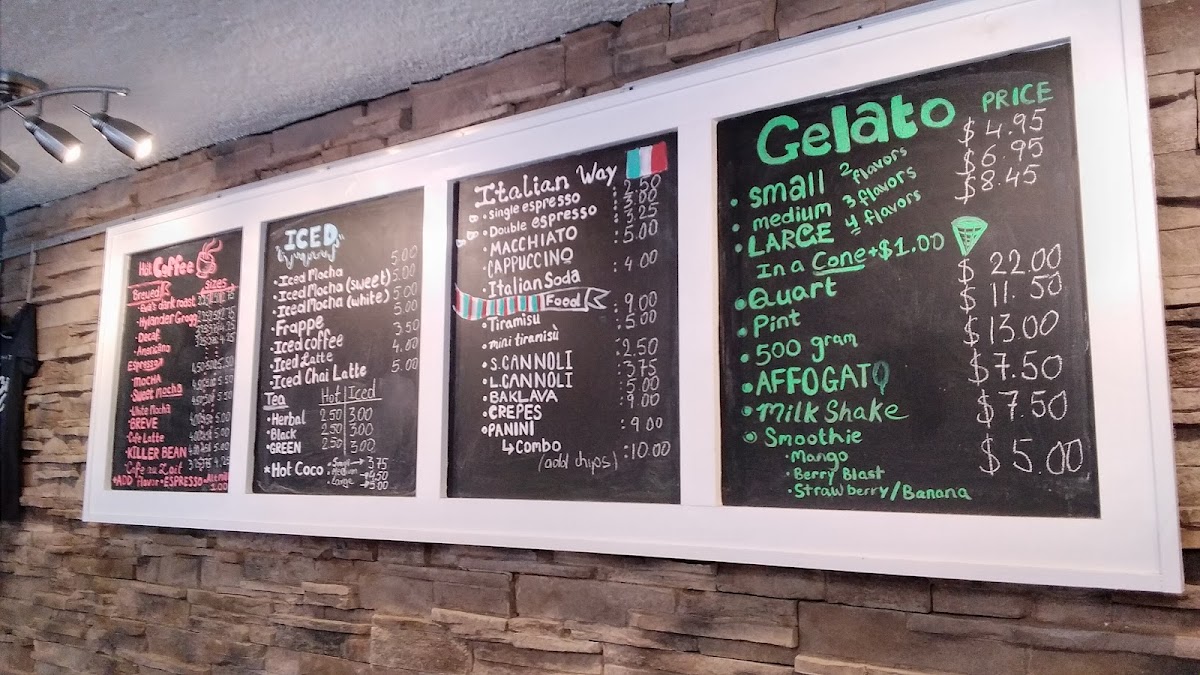 Hot Coffee
Brewed sizes
Eva's dark roast
Hylander Grogg
Decaf
Americano
Espresso
MOCHA
Sweet mocha
White Mocha
BREVE
Cafe Latte
KILLER BEAN
Cafe au Lait 3.25 3.75 4.25
+ADD Flavor • ESPRESSO
1.00
ICED
• Iced Mocha 5.00
• Iced Mocha (sweet) 5.00
• Iced Mocha (white) 5.00
• Frappe 5.00
• Iced coffee 3.50
• Iced Latte 4.00
• Iced Chai Latte 5.00
Tea Hot Iced
• Herbal 2.50 3.00
• Black 2.50 3.00
• GREEN 2.50 3.00
* Hot Coco • Small → 3.75
• Medium → 4.50
• Large → 5.00
Italian Way
• single espresso : 2.50
• Double espresso : 3.00
• MACCHIATO : 3.25
• CAPPUCCINO : 5.00
• Italian Soda : 4.00
Food
• Tiramisu : 9.00
• mini tiramisù : 5.00
• S. CANNOLI : 2.50
• L. CANNOLI : 3.75
• BAKLAVA : 5.00
• CREPES : 9.00
• PANINI : 9.00
↳ Combo
(add chips) : 10.00
Gelato PRICE
• small 2 flavors $ 4.95
• medium 3 flavors $ 6.95
• LARGE 4 flavors $ 8.45
In a Cone + $1.00
• Quart $ 22.00
• Pint $ 11.50
• 500 gram $ 13.00
• AFFOGATO $ 7.50
• Milk Shake $ 7.50
• Smoothie $ 5.00
• Mango
• Berry Blast
• Strawberry/Banana